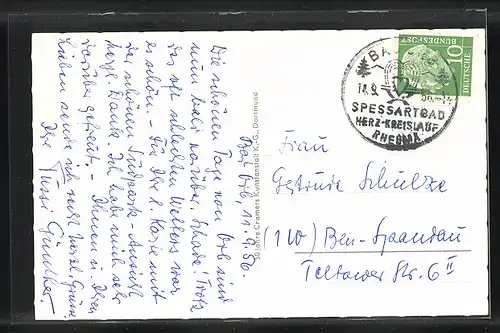 Bad Orb 11.9.56.
Die schönen Tage von Orb sind
nun bald vorüber. Schade! Trotz
des oft schlechten Wetters war
es schön. - Für Ihre l. Karte mit
der schönen Südpark-Ansicht
herzl. Dank. Ich habe mich sehr
darüber gefreut. - Ihnen u. Ihren
Lieben sende ich recht herzl. Grüsse
Ihre Günther
30 Jahre Cramers Kunstanstalt K.-G., Dortmund
BA
14.9.
SPESSARTBAD
HERZ-KREISLAUF
RHEUMA
10
DEUTSCHE
BUNDESPOST
Frau
Gertrude Schulze
(1W) Bln-Spandau
Teltower Str. 6 II